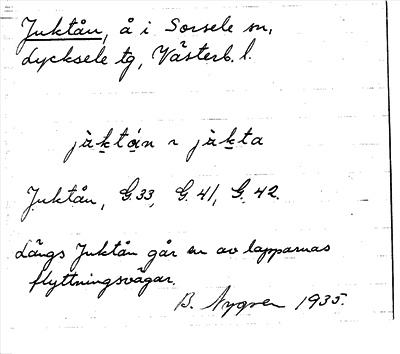 Juktån, å i Sorsele sn,
Lycksele tg, Västerb. l.
jàktán ~ jàkta
Juktån, G.33, G.41, G.42.
Längs Juktån går en av lapparnas
flyttningsvägar.
B. Nygren 1935.